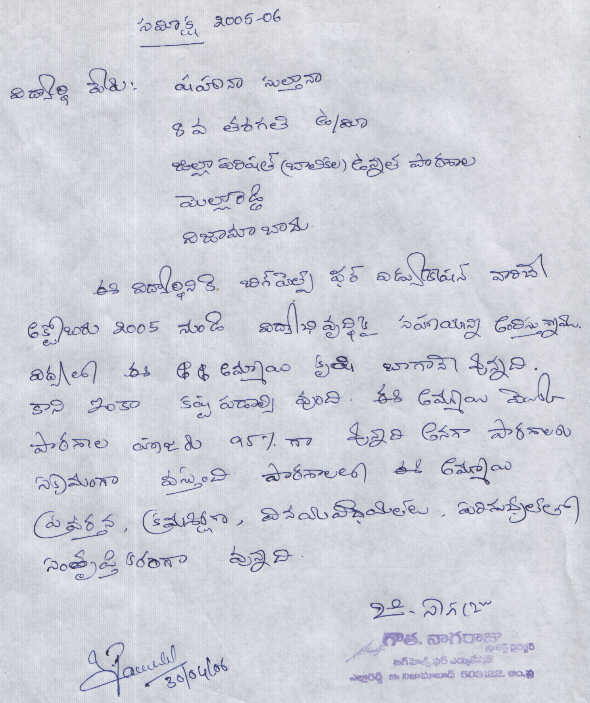 సమీక్ష 2005-06
విద్యార్థి పేరు: షహీనా సుల్తానా
8 వ తరగతి ఉ/మీ
జిల్లా పరిషత్ (బాలికల) ఉన్నత పాఠశాల
ఎల్లారెడ్డి
నిజామాబాదు.
ఈ విద్యార్థినికి బిగ్ హెల్ప్ ఫర్ ఎడ్యుకేషన్ వారిచే
అక్టోబరు 2005 నుండి విద్యాభివృద్ధికై సహాయాన్ని అందిస్తున్నాము.
విద్యలో ఈ అమ్మాయి కృషి బాగానే వున్నది.
కాని ఇంకా కష్ట పడాల్సి వుంది. ఈ అమ్మాయి యొక్క
పాఠశాల హాజరు 95% గా వున్నది అనగా పాఠశాలకు
సక్రమంగా వస్తుంది పాఠశాలలో ఈ అమ్మాయి
ప్రవర్తన, క్రమశిక్షణ, వినయవిధేయతలు, పరిశుభ్రతలో
సంతృప్తికరంగా వున్నది.
జి. నాగరాజు
గౌత. నాగరాజు
బిగ్ హెల్ప్ ఫర్ ఎడ్యుకేషన్
ఎల్లారెడ్డి జి. నిజామాబాద్ 503122. ఆం.ప్ర
30/04/06